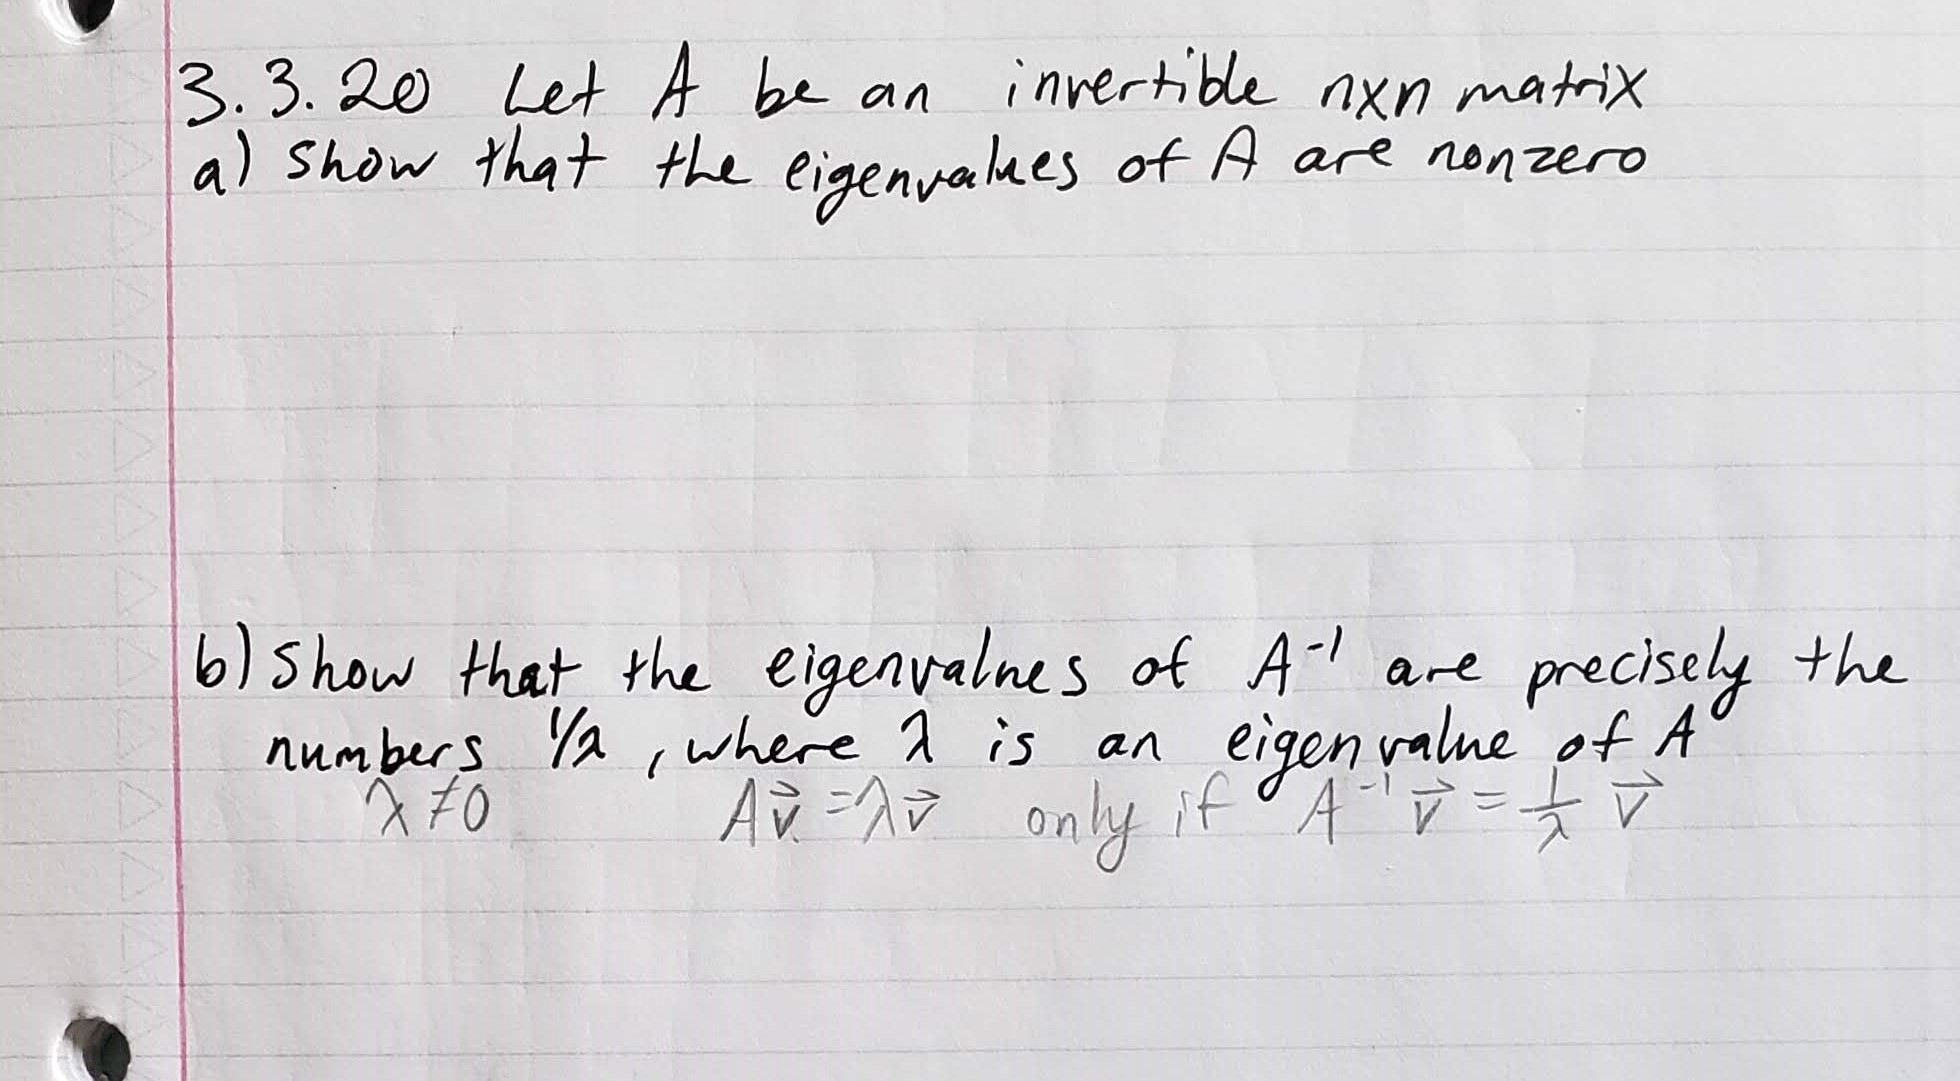 3.3.20 Let A be an invertible nxn matrix
a) Show that the eigenvalues of A are nonzero
b) Show that the eigenvalues of A⁻¹ are precisely the
numbers 1/λ, where λ is an eigenvalue of A
λ≠0 Av⃗ = λv⃗ only if A⁻¹v⃗ = 1/λ v⃗